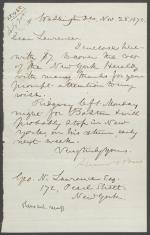 Washington, D.C. Nov. 28, 187
Dear Lawrence
I enclose here-
with $7 to cover the cost
of the New York Herald,
with many thanks for your
prompt attention to my
wish.
Ridgway left Monday
night for Boston & will
probably stop in New
York on his return early
next week.
Very truly yours,
Geo. N. Lawrence Esq.
172, Pearl Street,
New York